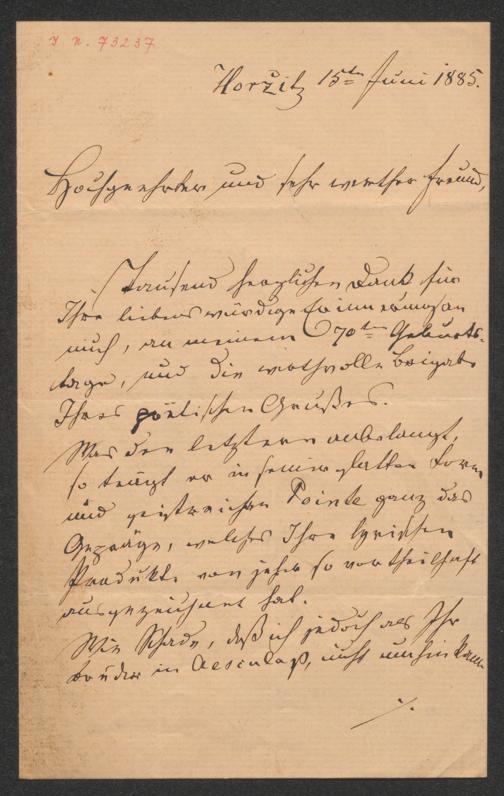 I. N. 73237
Horzitz 15ten Juni 1885.
Hochgeehrter und sehr werther Freund,
Tausend herzlichen Dank für
Ihre liebenswürdige Erinnerung an
mich, an meinem 70ten Geburts-
tage, und die werthvolle Beigabe
Ihres poëtischen Grußes.
Was den letztern anbelangt,
so trägt er in seiner glatten Form
und geistreichen Pointe ganz das
Gepräge, welches Ihre lyrischen
Produkte von jeher so vortheilhaft
ausgezeichnet hat.
Wie Schade, daß ich jedoch als Ihr
Bruder in Aesculap, nicht umhin kann
./.